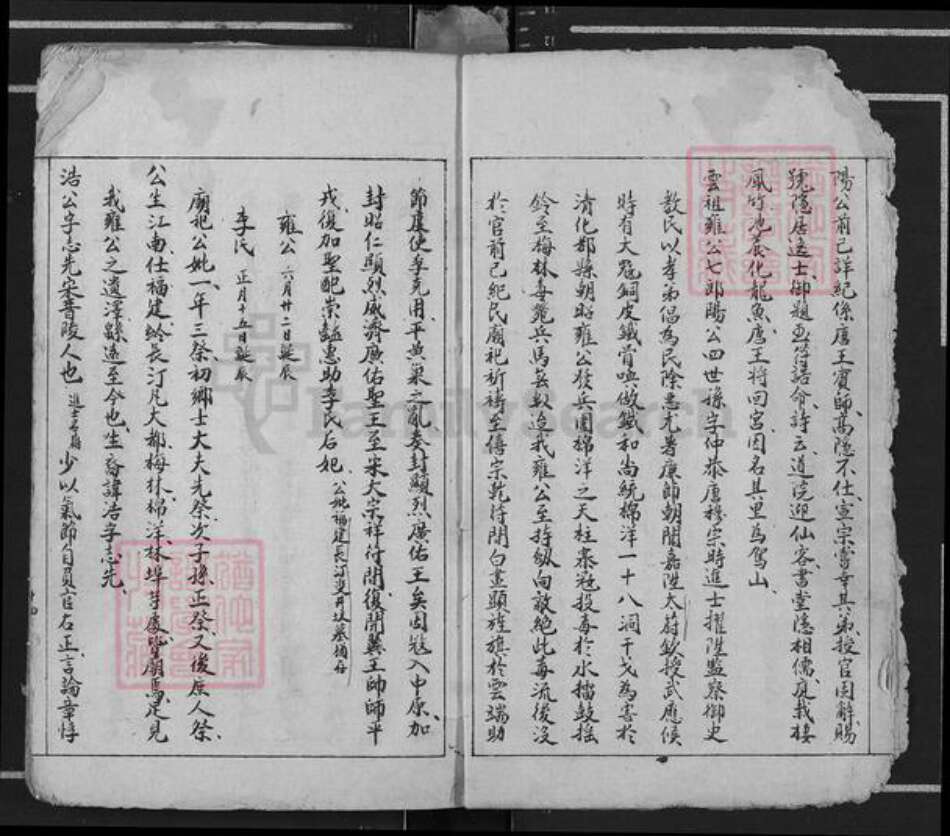 陽公前已詳紀係唐王賓師高隱不仕宣宗嘗幸其弟授官固辭賜
號隱居逸士御題亞符語舒詩云道院迎仙客書堂隱相儒庭栽棲
鳳竹池養化龍魚唐王將回宮因名其里為駕山
雲祖雍公七郎陽公四世孫字仲恭唐穆宗時進士擢陞監察御史
教民以孝弟倡為民除患尤著廉節朝聞嘉陞太尉欽授武應侯
時有大冦銅皮鐵骨喚做鐵和尚統棉洋一十八洞干戈為害於
清化都縣朝昭雍公發兵困棉洋之天柱寨冦投毒於水擂鼓搖
鈴至梅林毒斃兵馬無數迨我雍公至持劔向敵絕此毒流後沒
於官前已紀民廟祀祈禱至僖宗乾符間白晝顯旌旗於雲端助
節度使李克用平黄巢之亂奏封顯烈廣佑王矣因冦入中原加
封昭仁顯烈威濟廣佑聖王至宋大宗祥符間復開冀王師師平
戎復加聖配崇謚惠助李氏后妃 公妣福建長汀雙井坟墓猶存
雍公 六月廿二日誕辰
李氏 正月十五日誕辰
廟祀公妣一年三祭初鄉士大夫先祭次子孫正祭又後庶人祭
公生江南仕福建於長汀凡大都梅林棉洋林埠等處皆廟焉足見
我雍公之遺澤緜遠至今也生裔諱浩字志先
浩公字志先宋晋陵人也 進士有錄 少以氣節自負官右正言論章惇
FamilySearch